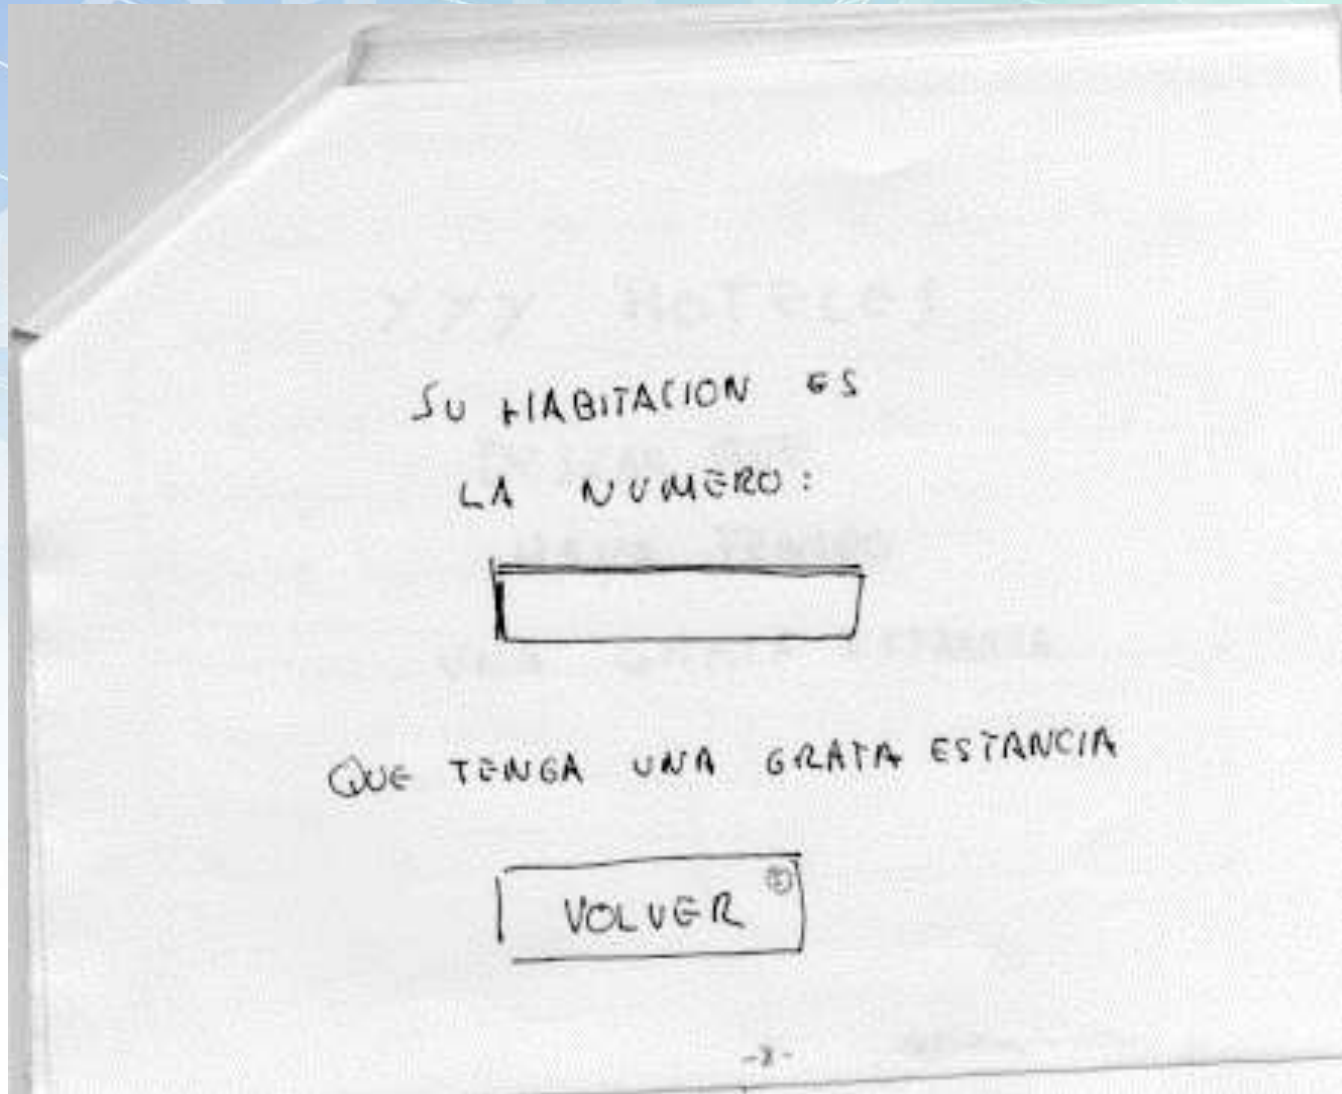 SU HABITACION ES
LA NUMERO:
QUE TENGA UNA GRATA ESTANCIA
VOLVER